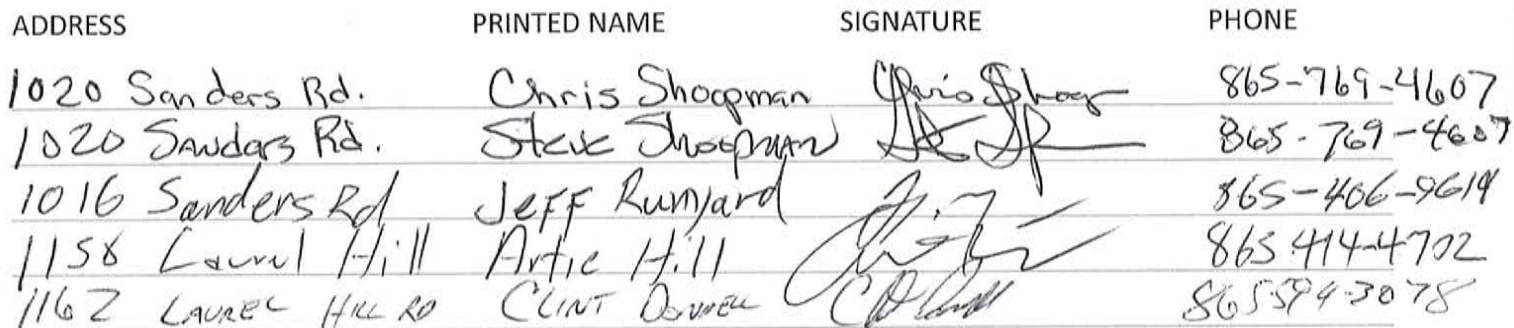 ADDRESS PRINTED NAME SIGNATURE PHONE
1020 Sanders Rd. Chris Shoopman Chris Shoop 865-769-4607
1020 Sanders Rd. Steve Shoopman 865-769-4607
1016 Sanders Rd Jeff Runyard 865-406-9619
1158 Laurel Hill Artie Hill 865 414-4702
1162 LAUREL HILL RD CLINT 865 594-3078